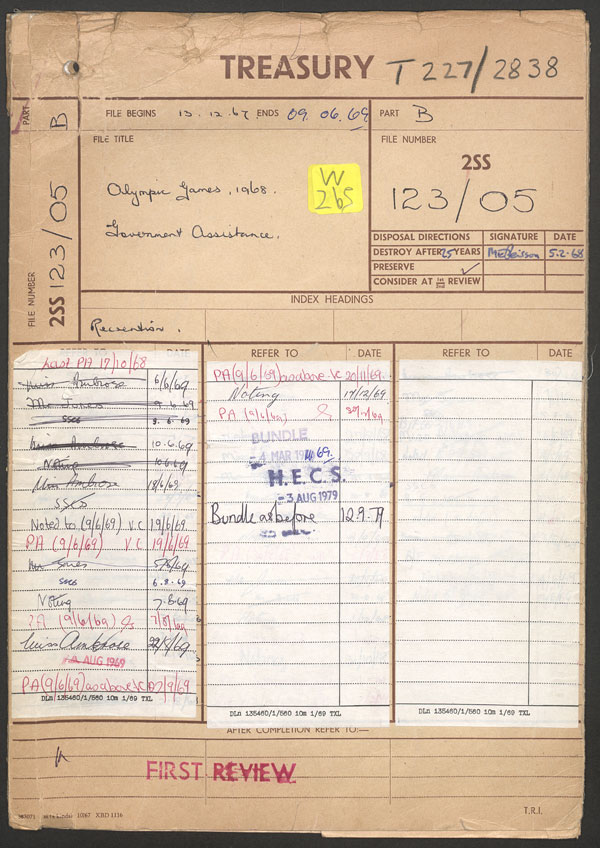 TREASURY T 227/2838
PART B
FILE NUMBER 2SS 123/05
FILE BEGINS 13.12.67 ENDS 09.06.69
PART B
FILE TITLE
Olympic Games, 1968.
Government Assistance.
W
265
FILE NUMBER
2SS
123/05
DISPOSAL DIRECTIONS SIGNATURE DATE
DESTROY AFTER 25 YEARS 5.2.68
PRESERVE ✓
CONSIDER AT REVIEW
INDEX HEADINGS
Recreation.
DATE
Last PA 17/10/68
Miss Ambrose 6/6/69
Mr Jones 9.6.69
SSCS 9.6.69
Miss Ambrose 10.6.69
Noting 10.6.69
Miss Ambrose 18/6/69
SSCS
Noted to (9/6/69) V.C 19/6/69
PA (9/6/69) V.C 19/6/69
Mr Jones 5/8/69
SSCS 6.8.69
Noting 7.8.69
PA (9/6/69)
Miss Ambrose
AUG 1969
PA (9/6/69) as above VC
DLn 135460/1/560 10m 1/69 TXL
REFER TO DATE
PA (9/6/69) as above VC 20/11/69
Noting 17/12/69
PA (9/6/69)
BUNDLE
-4 MAR
H.E.C.S.
-3 AUG 1979
Bundle as before 12.9.79
DLn 135460/1/560 10m 1/69 TXL
REFER TO DATE
DLn 135460/1/560 10m 1/69 TXL
AFTER COMPLETION REFER TO:—
FIRST REVIEW
10/67 XBD 1116
T.R.I.